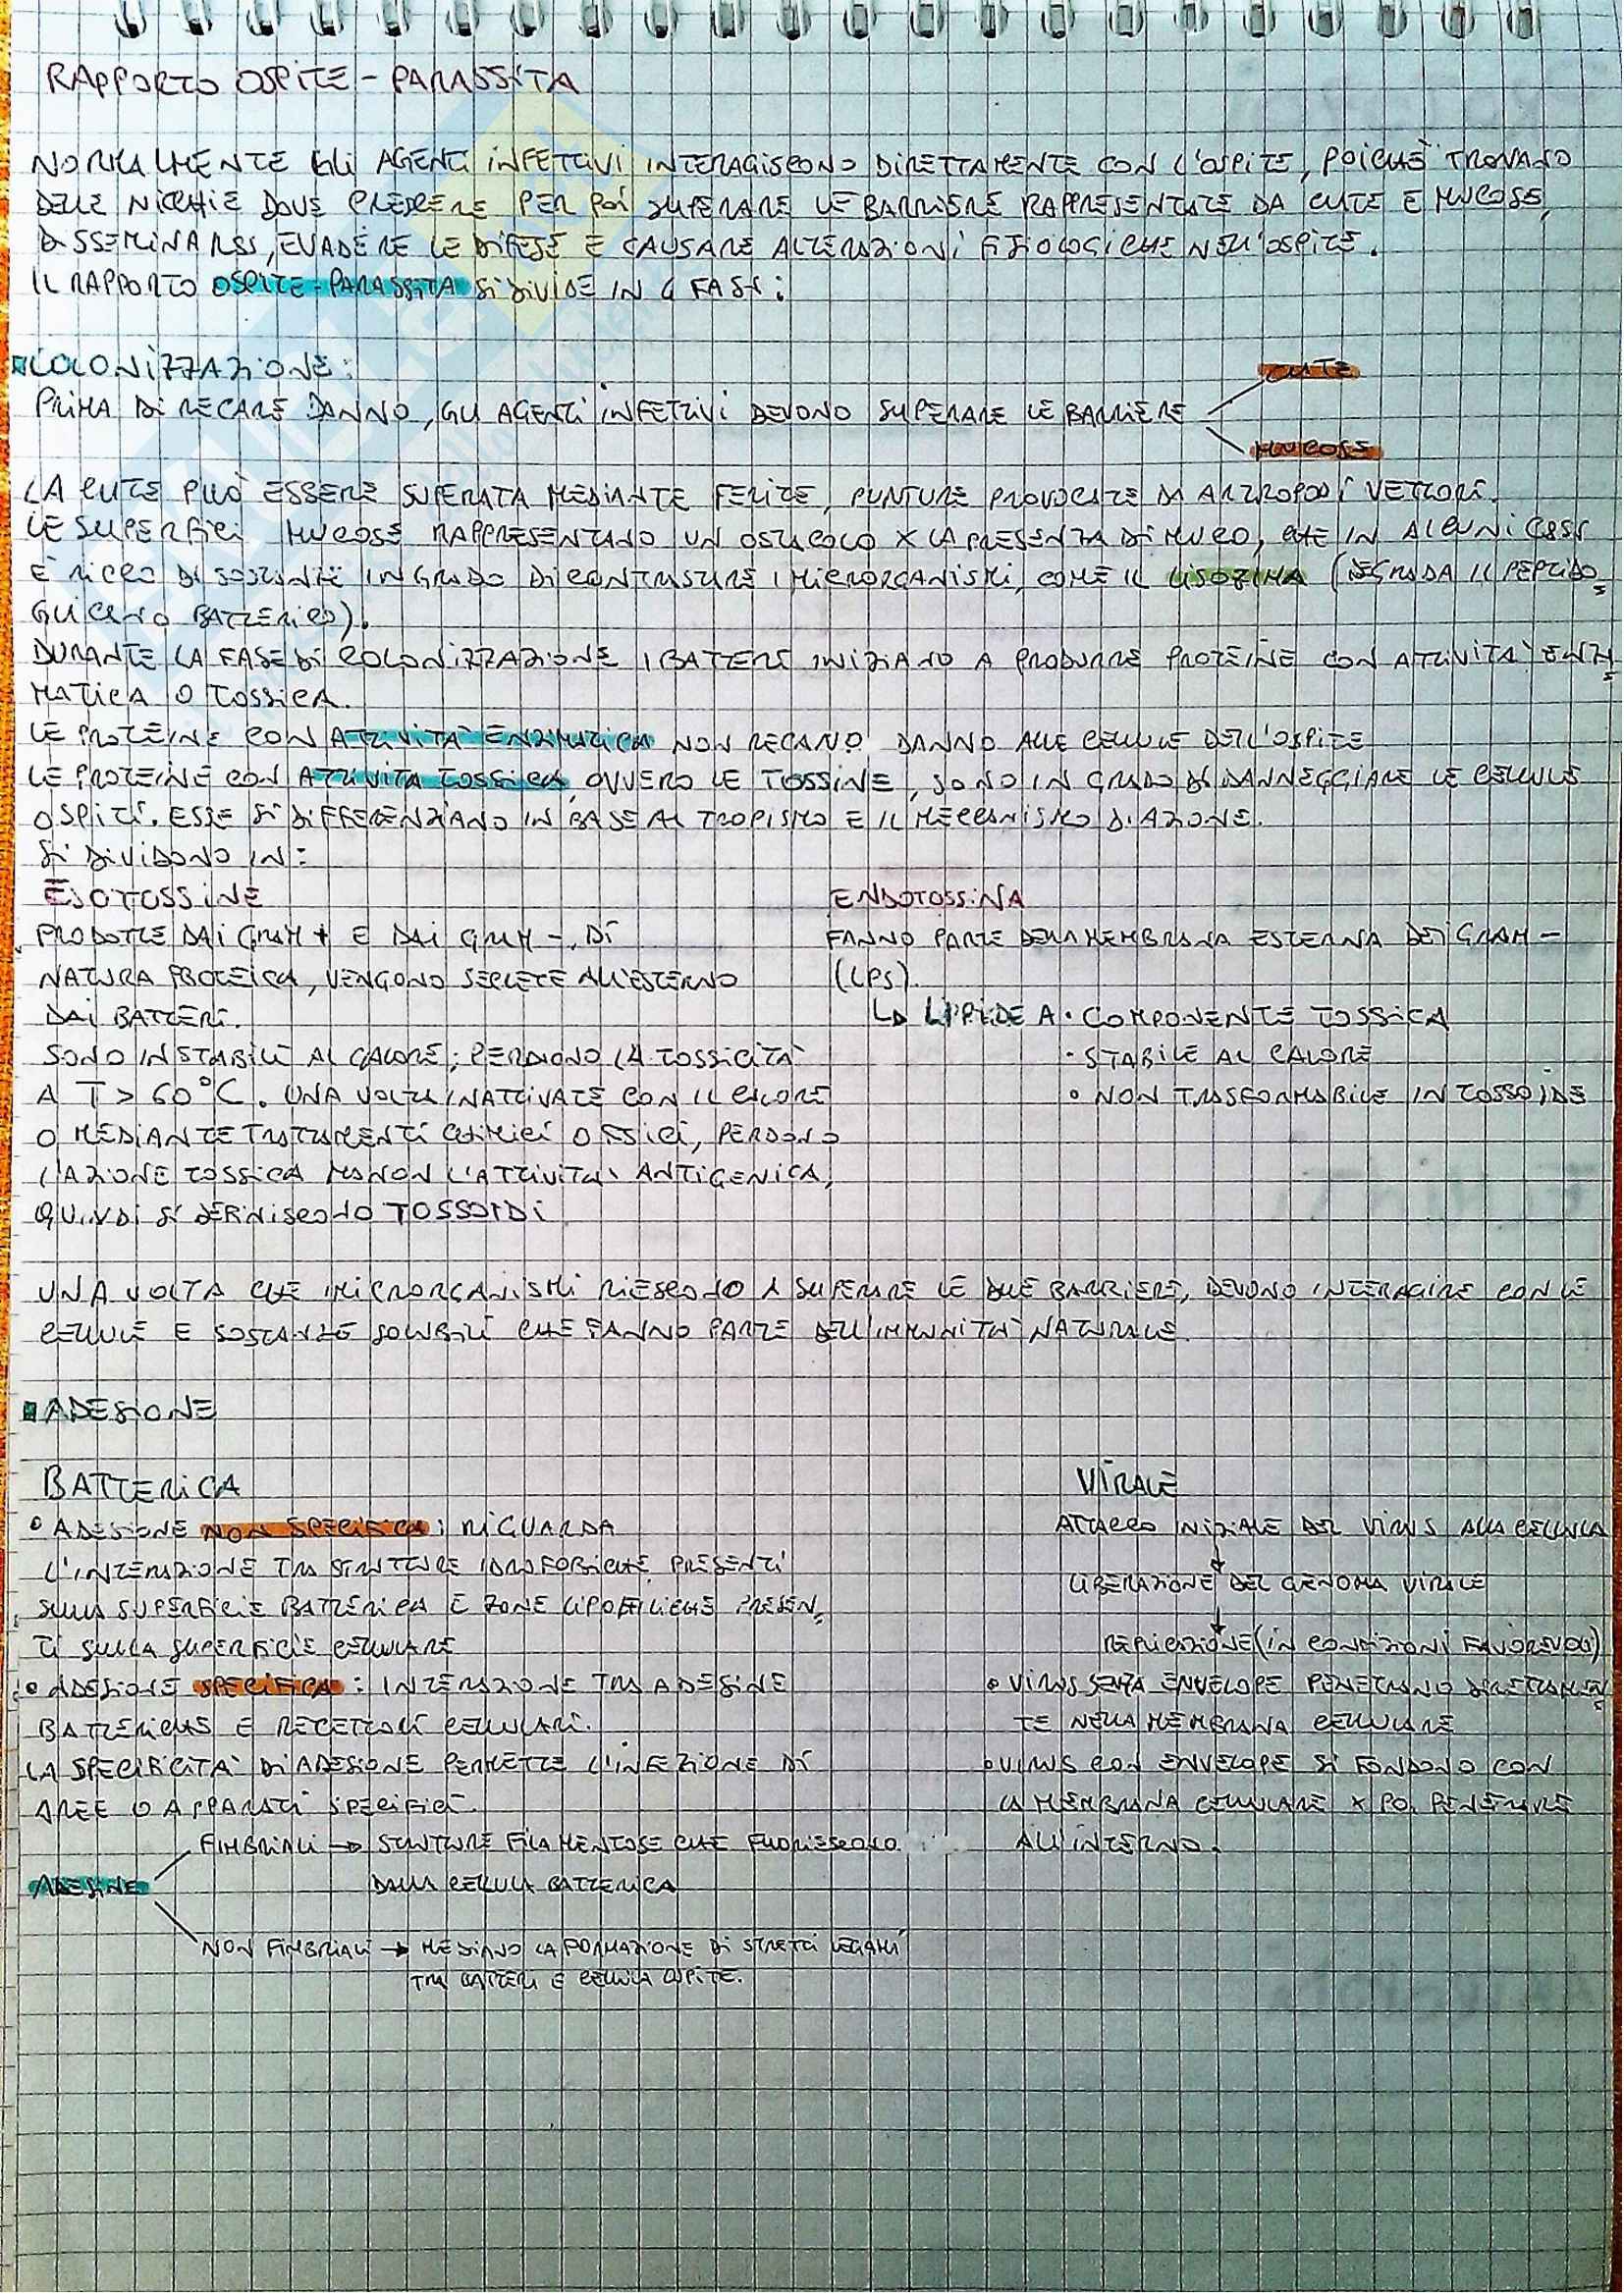 RAPPORTO OSPITE - PARASSITA
NORMALMENTE GLI AGENTI INFETTIVI INTERAGISCONO DIRETTAMENTE CON L'OSPITE, POICHÈ TROVANO
DELLE NICCHIE DOVE CRESCERE PER POI SUPERARE LE BARRIERE RAPPRESENTATE DA CUTE E MUCOSE,
DISSEMINARSI, EVADERE LE DIFESE E CAUSARE ALTERAZIONI FISIOLOGICHE NELL'OSPITE.
IL RAPPORTO OSPITE-PARASSITA SI DIVIDE IN 4 FASI:
COLONIZZAZIONE:
CUTE
PRIMA DI RECARE DANNO, GLI AGENTI INFETTIVI DEVONO SUPERARE LE BARRIERE
MUCOSE
LA CUTE PUÒ ESSERE SUPERATA MEDIANTE FERITE, PUNTURE PROVOCATE DA ARTROPODI VETTORI.
LE SUPERFICI MUCOSE RAPPRESENTANO UN OSTACOLO X LA PRESENZA DI MUCO, CHE IN ALCUNI CASI
È RICCO DI SOSTANZE IN GRADO DI CONTRASTARE I MICRORGANISMI, COME IL LISOZIMA (DEGRADA IL PEPTIDO
GLICANO BATTERICO).
DURANTE LA FASE DI COLONIZZAZIONE I BATTERI INIZIANO A PRODURRE PROTEINE CON ATTIVITÀ ENZI
MATICA O TOSSICA.
LE PROTEINE CON ATTIVITÀ ENZIMATICA NON RECANO DANNO ALLE CELLULE DELL'OSPITE
LE PROTEINE CON ATTIVITÀ TOSSICA, OVVERO LE TOSSINE, SONO IN GRADO DI DANNEGGIARE LE CELLULE
OSPITI. ESSE SI DIFFERENZIANO IN BASE AL TROPISMO E IL MECCANISMO D'AZIONE.
SI DIVIDONO IN:
ESOTOSSINE
PRODOTTE DAI GRAM + E DAI GRAM -, DI
NATURA PROTEICA, VENGONO SECRETE ALL'ESTERNO
DAI BATTERI.
SONO INSTABILI AL CALORE; PERDONO LA TOSSICITÀ
A T > 60°C. UNA VOLTA INATTIVATE CON IL CALORE
O MEDIANTE TRATTAMENTI CHIMICI O FISICI, PERDONO
L'AZIONE TOSSICA MA NON L'ATTIVITÀ ANTIGENICA,
QUINDI SI DEFINISCONO TOSSOIDI
ENDOTOSSINA
FANNO PARTE DELLA MEMBRANA ESTERNA DEI GRAM -
(LPS).
↳ LIPIDE A • COMPONENTE TOSSICA
• STABILE AL CALORE
• NON TRASFORMABILE IN TOSSOIDE
UNA VOLTA CHE I MICRORGANISMI RIESCONO A SUPERARE LE DUE BARRIERE, DEVONO INTERAGIRE CON LE
CELLULE E SOSTANZE SOLUBILI CHE FANNO PARTE DELL'IMMUNITÀ NATURALE.
ADESIONE
BATTERICA
• ADESIONE NON SPECIFICA: RIGUARDA
L'INTERAZIONE TRA STRUTTURE IDROFOBICHE PRESENTI
SULLA SUPERFICIE BATTERICA E ZONE LIPOFILICHE PRESEN
TI SULLA SUPERFICIE CELLULARE
• ADESIONE SPECIFICA: INTERAZIONE TRA ADESINE
BATTERICHE E RECETTORI CELLULARI.
LA SPECIFICITÀ DI ADESIONE PERMETTE L'INFEZIONE DI
AREE O APPARATI SPECIFICI.
FIMBRIALI → STRUTTURE FILAMENTOSE CHE FUORIESCONO
DALLA CELLULA BATTERICA
ADESINE
NON FIMBRIALI → MEDIANO LA FORMAZIONE DI STRETTI LEGAMI
TRA BATTERI E CELLULA OSPITE.
VIRALE
ATTACCO INIZIALE DEL VIRUS ALLA CELLULA
↓
LIBERAZIONE DEL GENOMA VIRALE
↓
REPLICAZIONE (IN CONDIZIONI FAVOREVOLI)
• VIRUS SENZA ENVELOPE PENETRANO DIRETTAMEN
TE NELLA MEMBRANA CELLULARE
• VIRUS CON ENVELOPE SI FONDONO CON
LA MEMBRANA CELLULARE X POI PENETRARE
ALL'INTERNO.